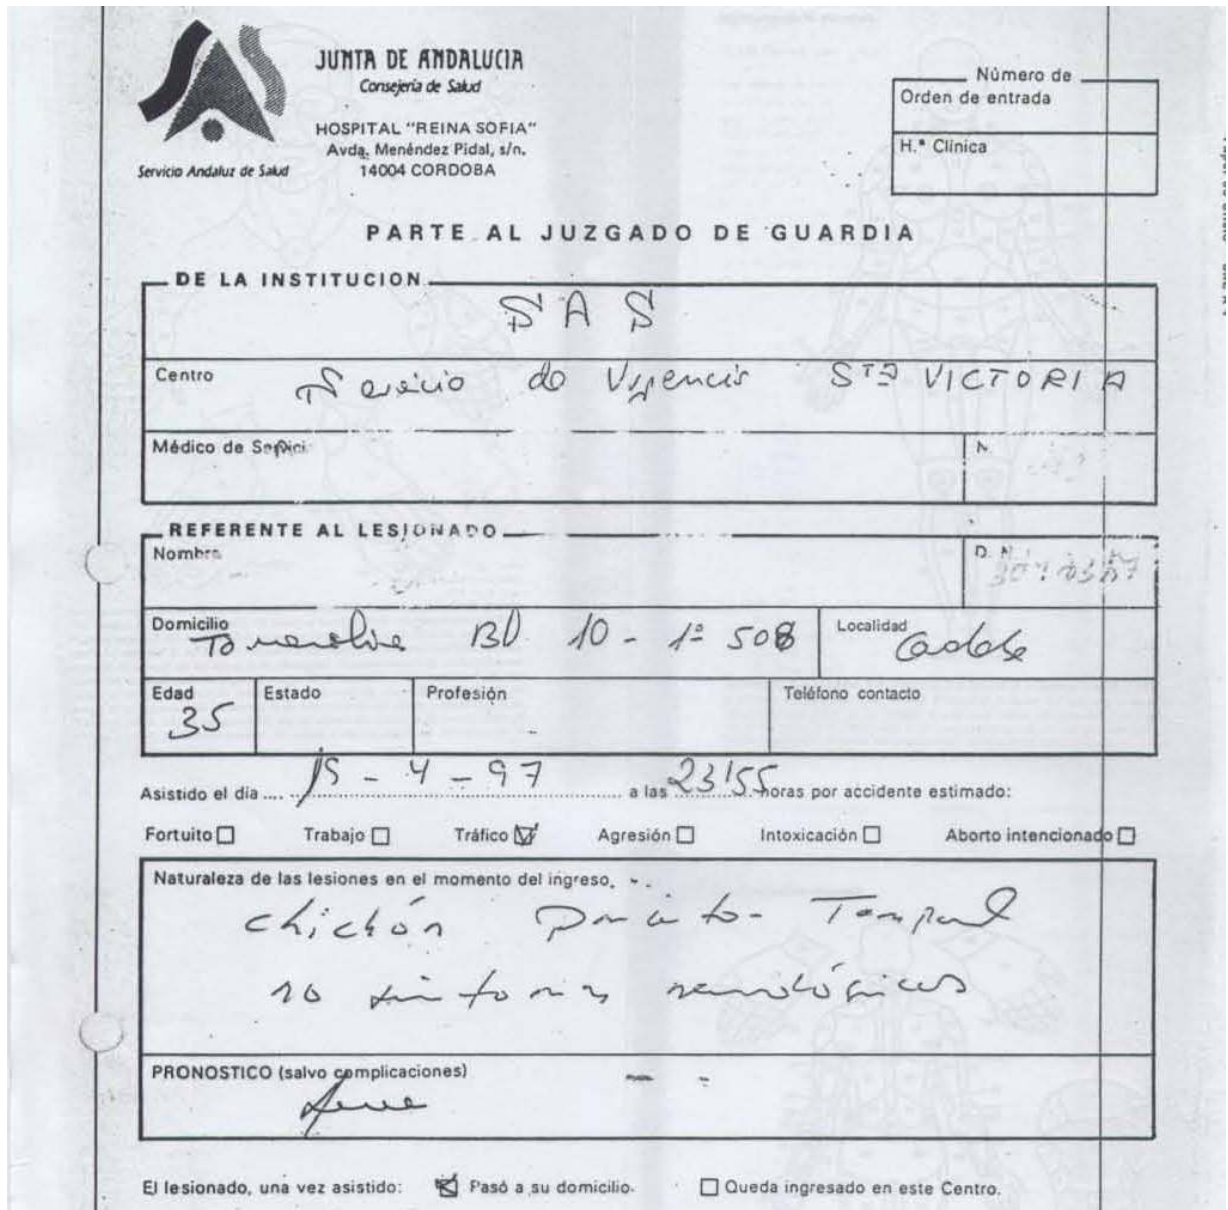 JUNTA DE ANDALUCIA
Consejería de Salud
HOSPITAL "REINA SOFIA"
Avda. Menéndez Pidal, s/n.
14004 CORDOBA
Servicio Andaluz de Salud
Número de
Orden de entrada
H.ª Clínica
PARTE AL JUZGADO DE GUARDIA
DE LA INSTITUCION
SAS
Centro Servicio de Urgencis STª VICTORIA
Médico de N.
REFERENTE AL LESIONADO
Nombre D. N.
Domicilio Bl 10 - 1º 508 Localidad
Edad Estado Profesión Teléfono contacto
35
Asistido el día .... - 4 - 97 a las 23'55 horas por accidente estimado:
Fortuito Trabajo Tráfico Agresión Intoxicación Aborto intencionado
Naturaleza de las lesiones en el momento del ingreso,
chichón
no síntomas neurológicos
PRONOSTICO (salvo complicaciones)
El lesionado, una vez asistido: Pasó a su domicilio. Queda ingresado en este Centro.